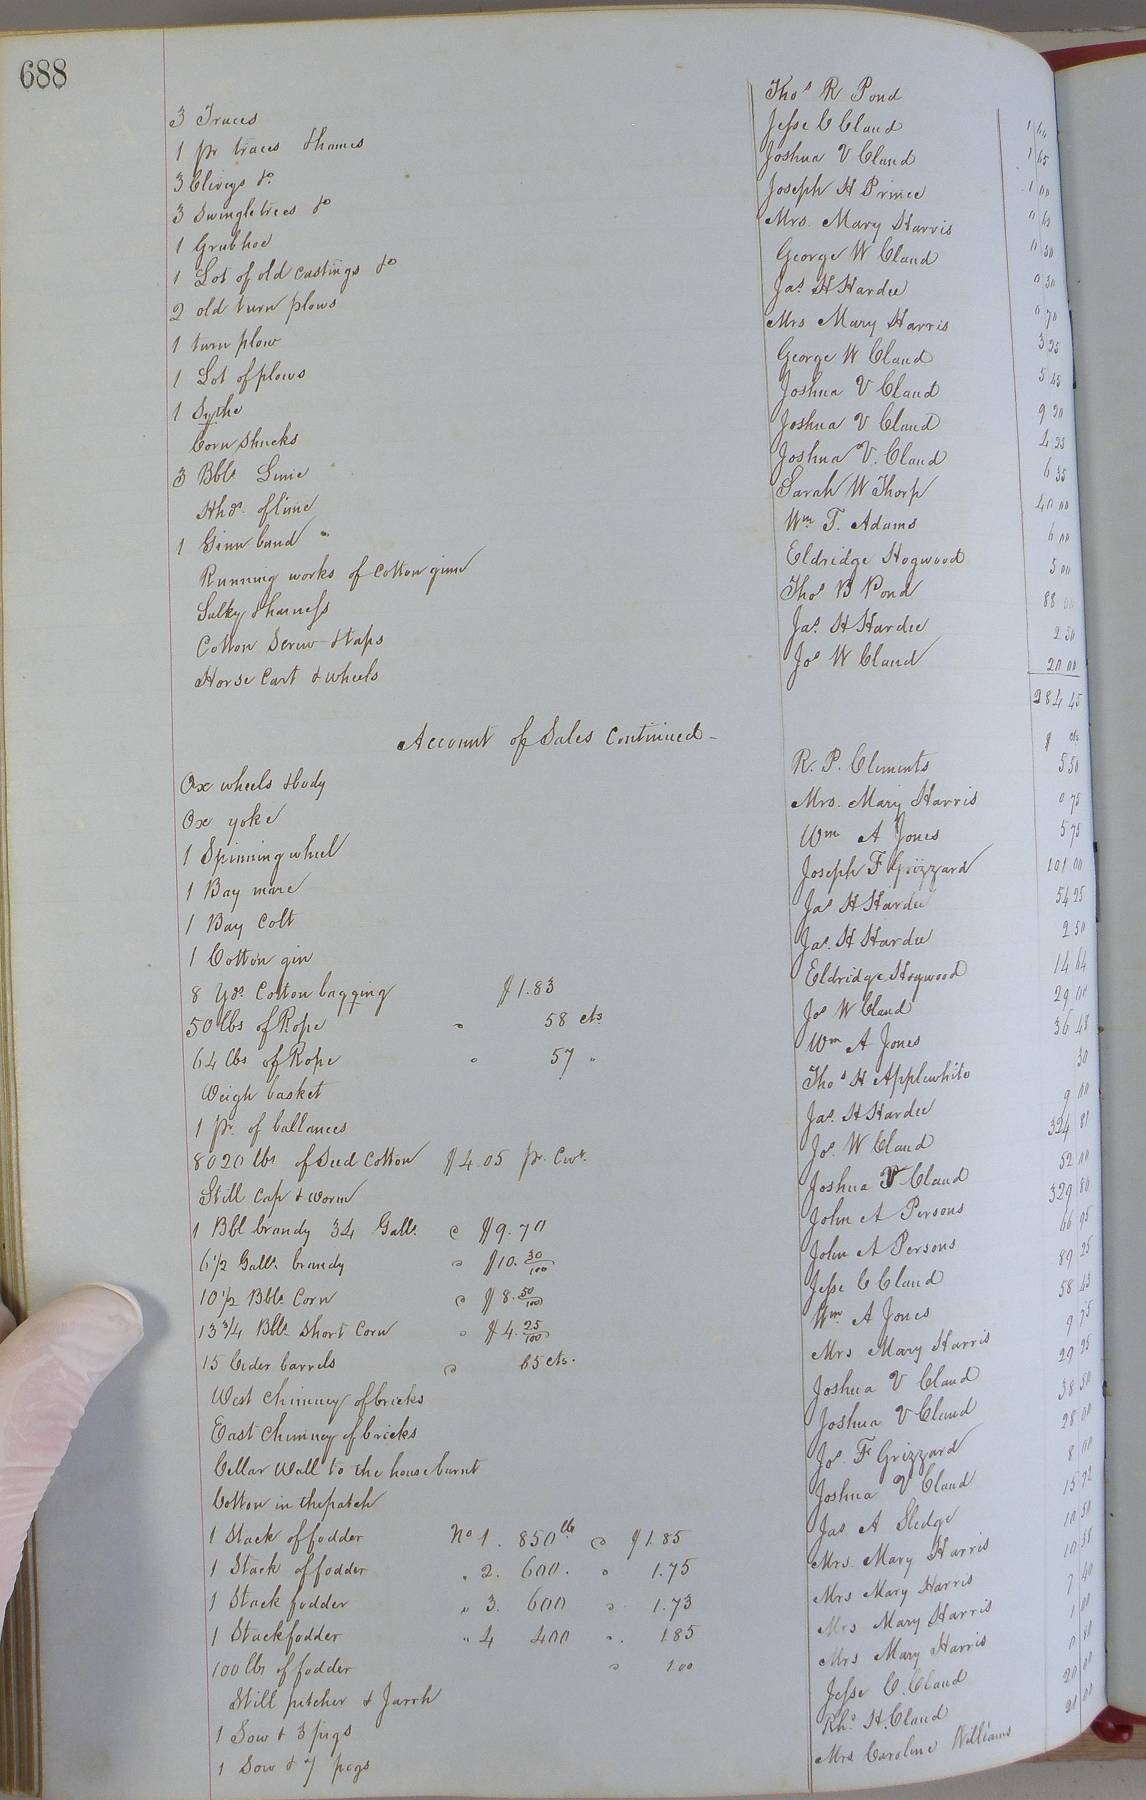 688
3 Traces Thos R Pond
1 pr traces & hames Jesse C Claud 1 60
3 Cliveys &c Joshua V Claud 1 65
3 Swingletrees &c Joseph H Prince 1 00
1 Grubhoe Mrs. Mary Harris 0 60
1 Lot of old castings &c George W Claud 0 50
2 old turn plows Jas. H Hardee 0 30
1 turn plow Mrs Mary Harris 0 70
1 Lot of plows George W Claud 3 25
1 Sythe Joshua V Claud 5 45
Corn Shucks Joshua V Claud 9 20
3 Bbls Lime Joshua V. Claud 4 25
Hhds. of lime Sarah W Thorp 6 35
1 Ginn band Wm T. Adams 40 00
Running works of Cotton ginn Eldridge Hogwood 6 00
Sulky & harness Thos B Pond 5 00
Cotton Screw & taps Jas. H Hardee 88 00
Horse Cart & wheels Jos W Claud 2 50
20 00
284 45
Account of Sales Continued - $ cts
Ox wheels & body R. P. Clements 5 50
Ox yoke Mrs. Mary Harris 0 75
1 Spinning wheel Wm A Jones 5 75
1 Bay mare Joseph F Grizzard 101 00
1 Bay Colt Jas H Hardee 54 25
1 Cotton gin Jas. H Hardee 2 50
8 Yds. Cotton bagging $1.83 Eldridge Hogwood 14 64
50 lbs of Rope " 58 cts Jos W Claud 29 00
64 lbs of Rope " 57 " Wm A Jones 36 48
Weigh basket Thos H Applewhite 30
1 Pr. of ballances Jas. H Hardee 9 00
8020 lbs of Seed Cotton $4.05 pr. Cwt. Jos. W Claud 324 81
Still Cap & worm Joshua V Claud 52 00
1 Bbl brandy 34 Galls. @ $9.70 John A Persons 329 80
6 1/2 Galls. brandy " $10.30/100 John A Persons 66 95
10 1/2 Bbls Corn @ $8.50/100 Jesse C Claud 89 25
13 3/4 Bbls. Short Corn " $4.25/100 Wm A Jones 58 43
15 Cider barrels @ 65 cts. Mrs Mary Harris 9 75
West Chimney of bricks Joshua V Claud 29 25
East Chimney of bricks Joshua V Claud 38 50
Cellar Wall to the house burnt Jos. F Grizzard 28 00
Cotton in the patch Joshua V Claud 8 00
1 Stack of fodder No 1. 850 lbs @ $1.85 Jas A Sledge 15 72
1 Stack of fodder " 2. 600. " 1.75 Mrs. Mary Harris 10 50
1 Stack fodder " 3. 600 " 1.73 Mrs Mary Harris 10 38
1 Stack fodder " 4 400 " 185 Mrs Mary Harris 7 40
100 lbs of fodder " 1.00 Mrs Mary Harris 1 00
Still pitcher & Jarrh Jesse C. Claud 0 80
1 Sow & 3 pigs H. Claud 20 00
1 Sow & 7 pigs Mrs Caroline Williams 20 00